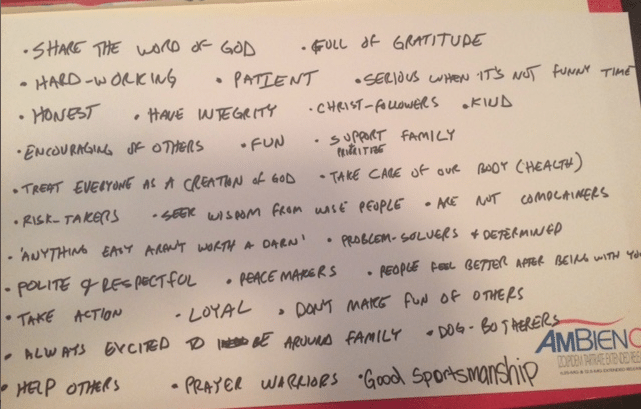 • SHARE THE WORD OF GOD • FULL OF GRATITUDE
• HARD-WORKING • PATIENT • SERIOUS WHEN IT'S NOT FUNNY TIME
• HONEST • HAVE INTEGRITY • CHRIST-FOLLOWERS • KIND
• ENCOURAGING OF OTHERS • FUN • SUPPORT FAMILY
PRIORITIZE
• TREAT EVERYONE AS A CREATION OF GOD • TAKE CARE OF OUR BODY (HEALTH)
• RISK-TAKERS • SEEK WISDOM FROM WISE PEOPLE • ARE NOT COMPLAINERS
• 'ANYTHING EASY AREN'T WORTH A DARN' • PROBLEM-SOLVERS & DETERMINED
• POLITE & RESPECTFUL • PEACEMAKERS • PEOPLE FEEL BETTER AFTER BEING WITH YOU
• TAKE ACTION • LOYAL • DON'T MAKE FUN OF OTHERS
• ALWAYS EXCITED TO BE AROUND FAMILY • DOG-BOTHERERS
• HELP OTHERS • PRAYER WARRIORS • Good Sportsmanship
AMBIEN